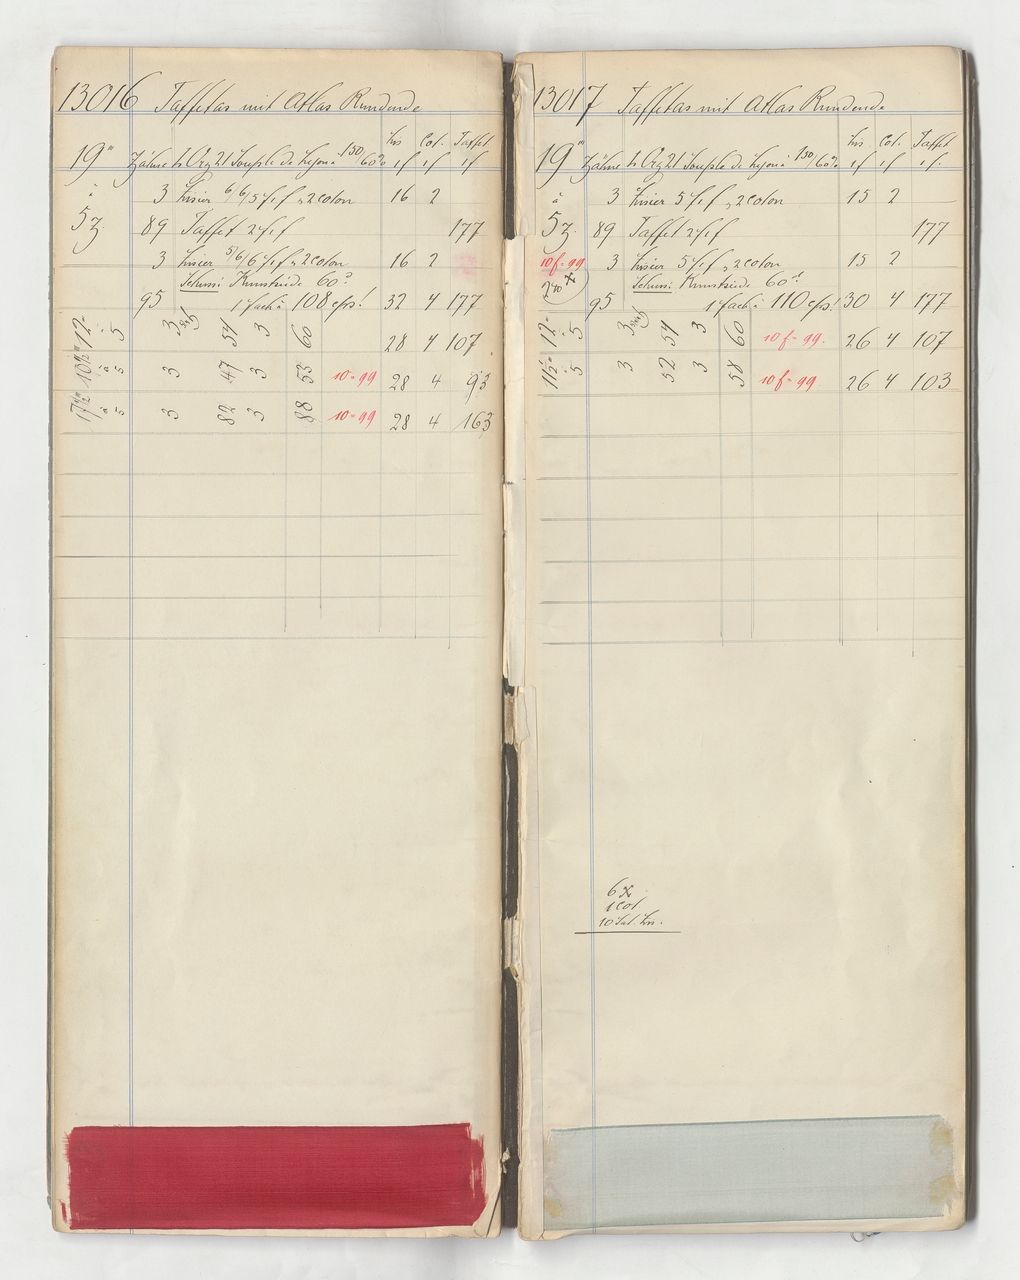 13016 Taffetas mit Atlas Rundende
lis Cot. Taffet
19''' Zähne à Souple de 130/60% 1f 1f 1f
à 3 lisier 6/6/5 f 1 f 2 coton 16 2
5 z. 89 Taffet 2 f 1 f 177
3 lisier 5/6/6 f 1 f 2 coton 16 2
Schuss: Kunstseide 60
95 1 fach à 108 cps! 32 4 177
12- à 5 3 54 3 60 28 4 107
10 1/2''' à 5 3 47 3 53 10=99 28 4 93
17 1/2''' à 5 3 82 3 88 10=99 28 4 163
13017 Taffetas mit Atlas Rundende
lis Cot. Taffet
19''' Zähne à Souple de 130/60% 1f 1f 1f
à 3 lisier 5 f 1 f 2 coton 15 2
5 z. 89 Taffet 2 f 1 f 177
10f=99 3 lisier 5 f 1 f 2 coton 15 2
Schuss: Kunstseide 60
95 1 fach à 110 cps! 30 4 177
12- à 5 3 54 3 60 10f=99. 26 4 107
11 1/2 à 5 3 52 3 58 10f=99 26 4 103
6 x
1 cot.